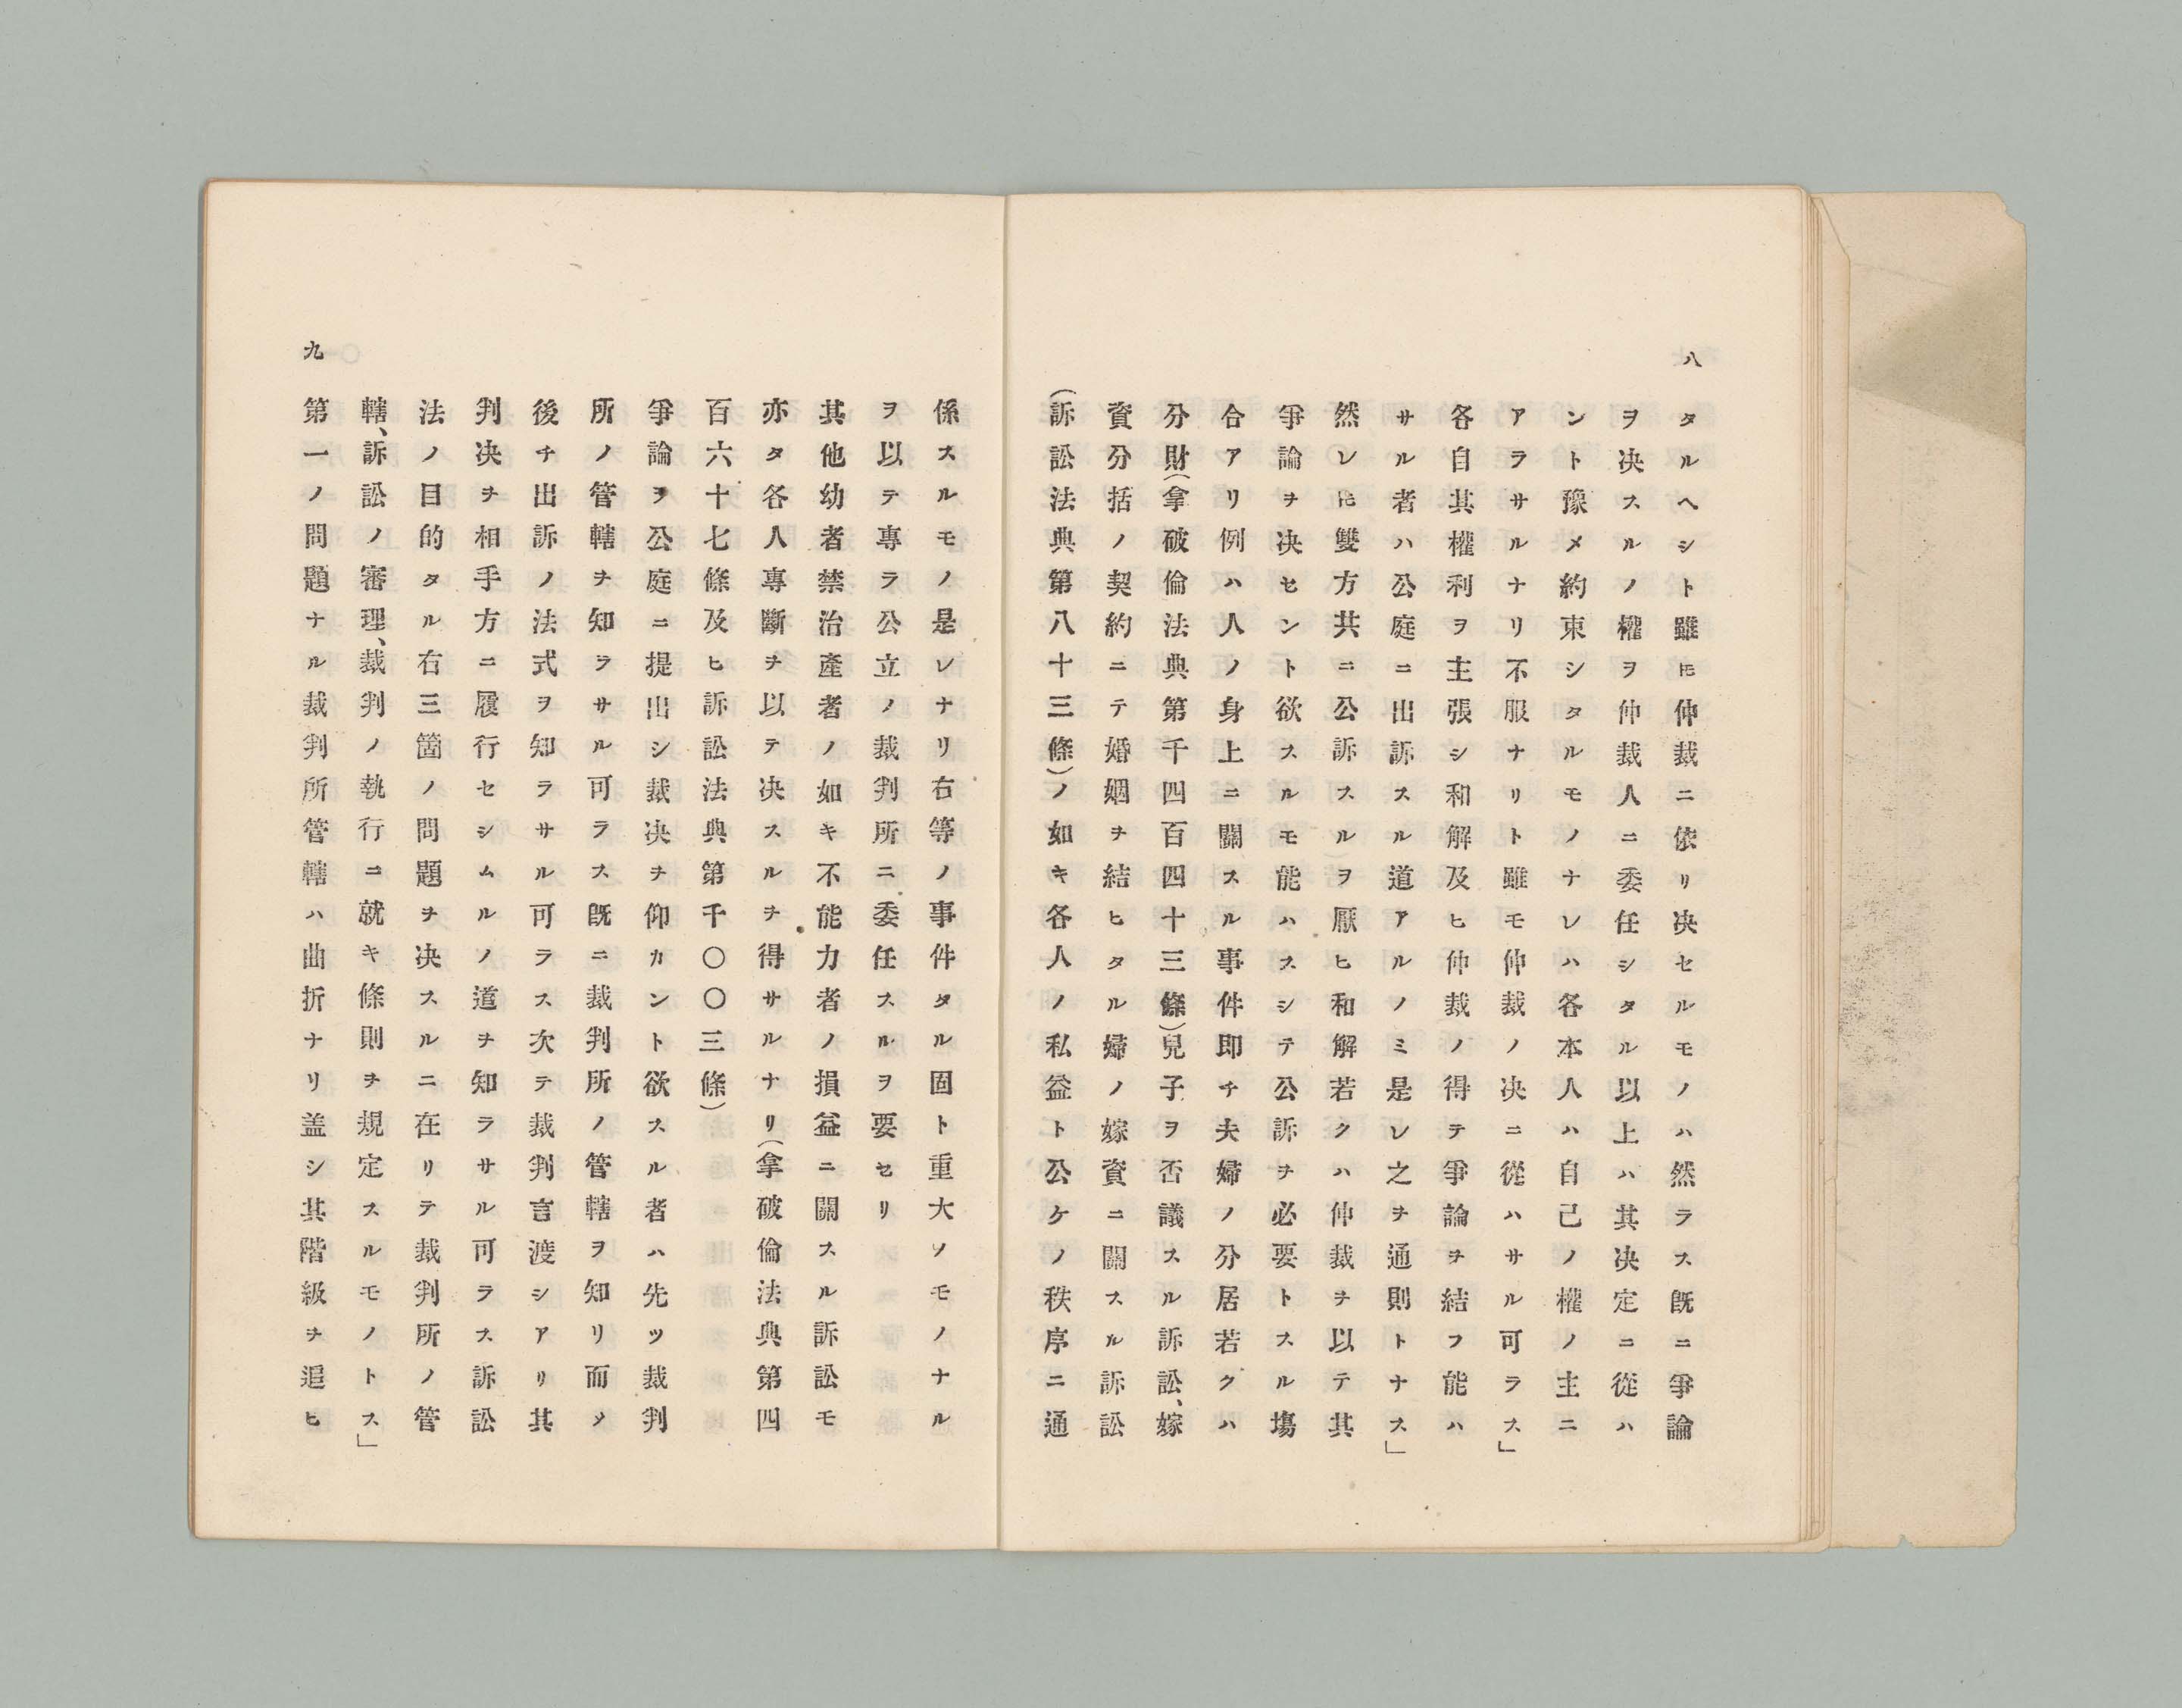 八
タルヘシト雖𪜈仲裁ニ依リ决セルモノハ然ラス既ニ爭論
ヲ决スルノ權ヲ仲裁人ニ委任シタル以上ハ其决定ニ從ハ
ント豫メ約束シタルモノナレハ各本人ハ自己ノ權ノ主ニ
アラサルナリ不服ナリト雖モ仲裁ノ决ニ從ハサル可ラス」
各自其權利ヲ主張シ和解及ヒ仲裁ノ得テ爭論ヲ結フ能ハ
サル者ハ公庭ニ出訴スル道アルノミ是レ之ヲ通則トナス」
然レ𪜈雙方共ニ公訴スルヲ厭ヒ和解若クハ仲裁ヲ以テ其
爭論ヲ决セント欲スルモ能ハスシテ公訴ヲ必要トスル塲
合アリ例ハ人ノ身上ニ關スル事件即チ夫婦ノ分居若クハ
分財(拿破倫法典第千四百四十三條)兒子ヲ否議スル訴訟、嫁
資分括ノ契約ニテ婚姻ヲ結ヒタル婦ノ嫁資ニ關スル訴訟
(訴訟法典第八十三條)ノ如キ各人ノ私益ト公ケノ秩序ニ通
九
係スルモノ是レナリ右等ノ事件タル固ト重大ソモノナル
ヲ以テ專ラ公立ノ裁判所ニ委任スルヲ要セリ
其他幼者禁治產者ノ如キ不能力者ノ損益ニ關スル訴訟モ
亦タ各人專斷ヲ以テ决スルヲ得サルナリ(拿破倫法典第四
百六十七條及ヒ訴訟法典第千〇〇三條)
爭論ヲ公庭ニ提出シ裁决ヲ仰カント欲スル者ハ先ツ裁判
所ノ管轄ヲ知ラサル可ラス既ニ裁判所ノ管轄ヲ知リ而〆
後チ出訴ノ法式ヲ知ラサル可ラス次テ裁判言渡シアリ其
判决ヲ相手方ニ履行セシムルノ道ヲ知ラサル可ラス訴訟
法ノ目的タル右三箇ノ問題ヲ决スルニ在リテ裁判所ノ管
轄、訴訟ノ審理、裁判ノ執行ニ就キ條則ヲ規定スルモノトス」
第一ノ問題ナル裁判所管轄ハ曲折ナリ盖シ其階級ヲ追ヒ